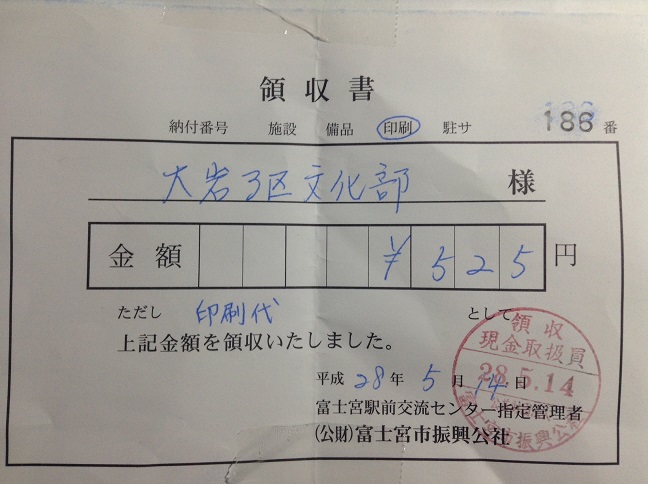 領収書
納付番号 施設 備品 印刷 駐サ 186 番
大岩3区文化部 様
金額 ¥525円
ただし 印刷代 として
上記金額を領収いたしました。
平成28年5月14日
富士宮駅前交流センター指定管理者
(公財)富士宮市振興公社
領収
現金取扱員
28.5.14
富士宮市振興公社